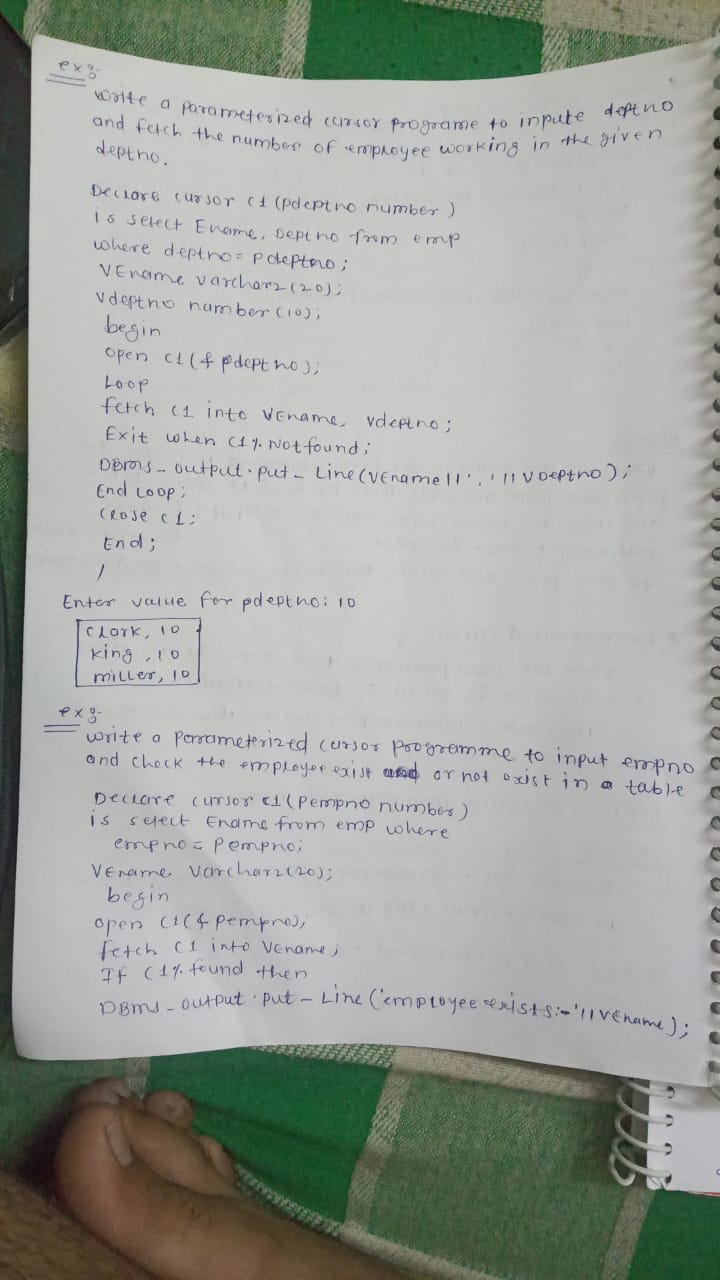 ex:-
write a parameterized cursor programe to inpute deptno
and fetch the number of employee working in the given
deptno.
Declare cursor c1 (pdeptno number)
is select Ename, Deptno from emp
where deptno = Pdeptno;
VEname varchar2(20);
Vdeptno number(10);
begin
open c1(& pdeptno);
Loop
fetch c1 into VEname, vdeptno;
Exit when C1% Notfound;
DBms_output.put_Line(VEname||','||VDeptno);
End Loop;
close c1;
End;
/
Enter value for pdeptno: 10
Clark, 10
king, 10
miller, 10
ex:-
write a parameterized cursor programme to input empno
and check the employee exist or not exist in a table
Declare cursor c1(Pempno number)
is select Ename from emp where
empno = Pempno;
VEname varchar2(20);
begin
open C1(& pempno);
fetch C1 into Vename;
If C1% found then
DBms_output.put_Line('employee exists:-'||VEname);